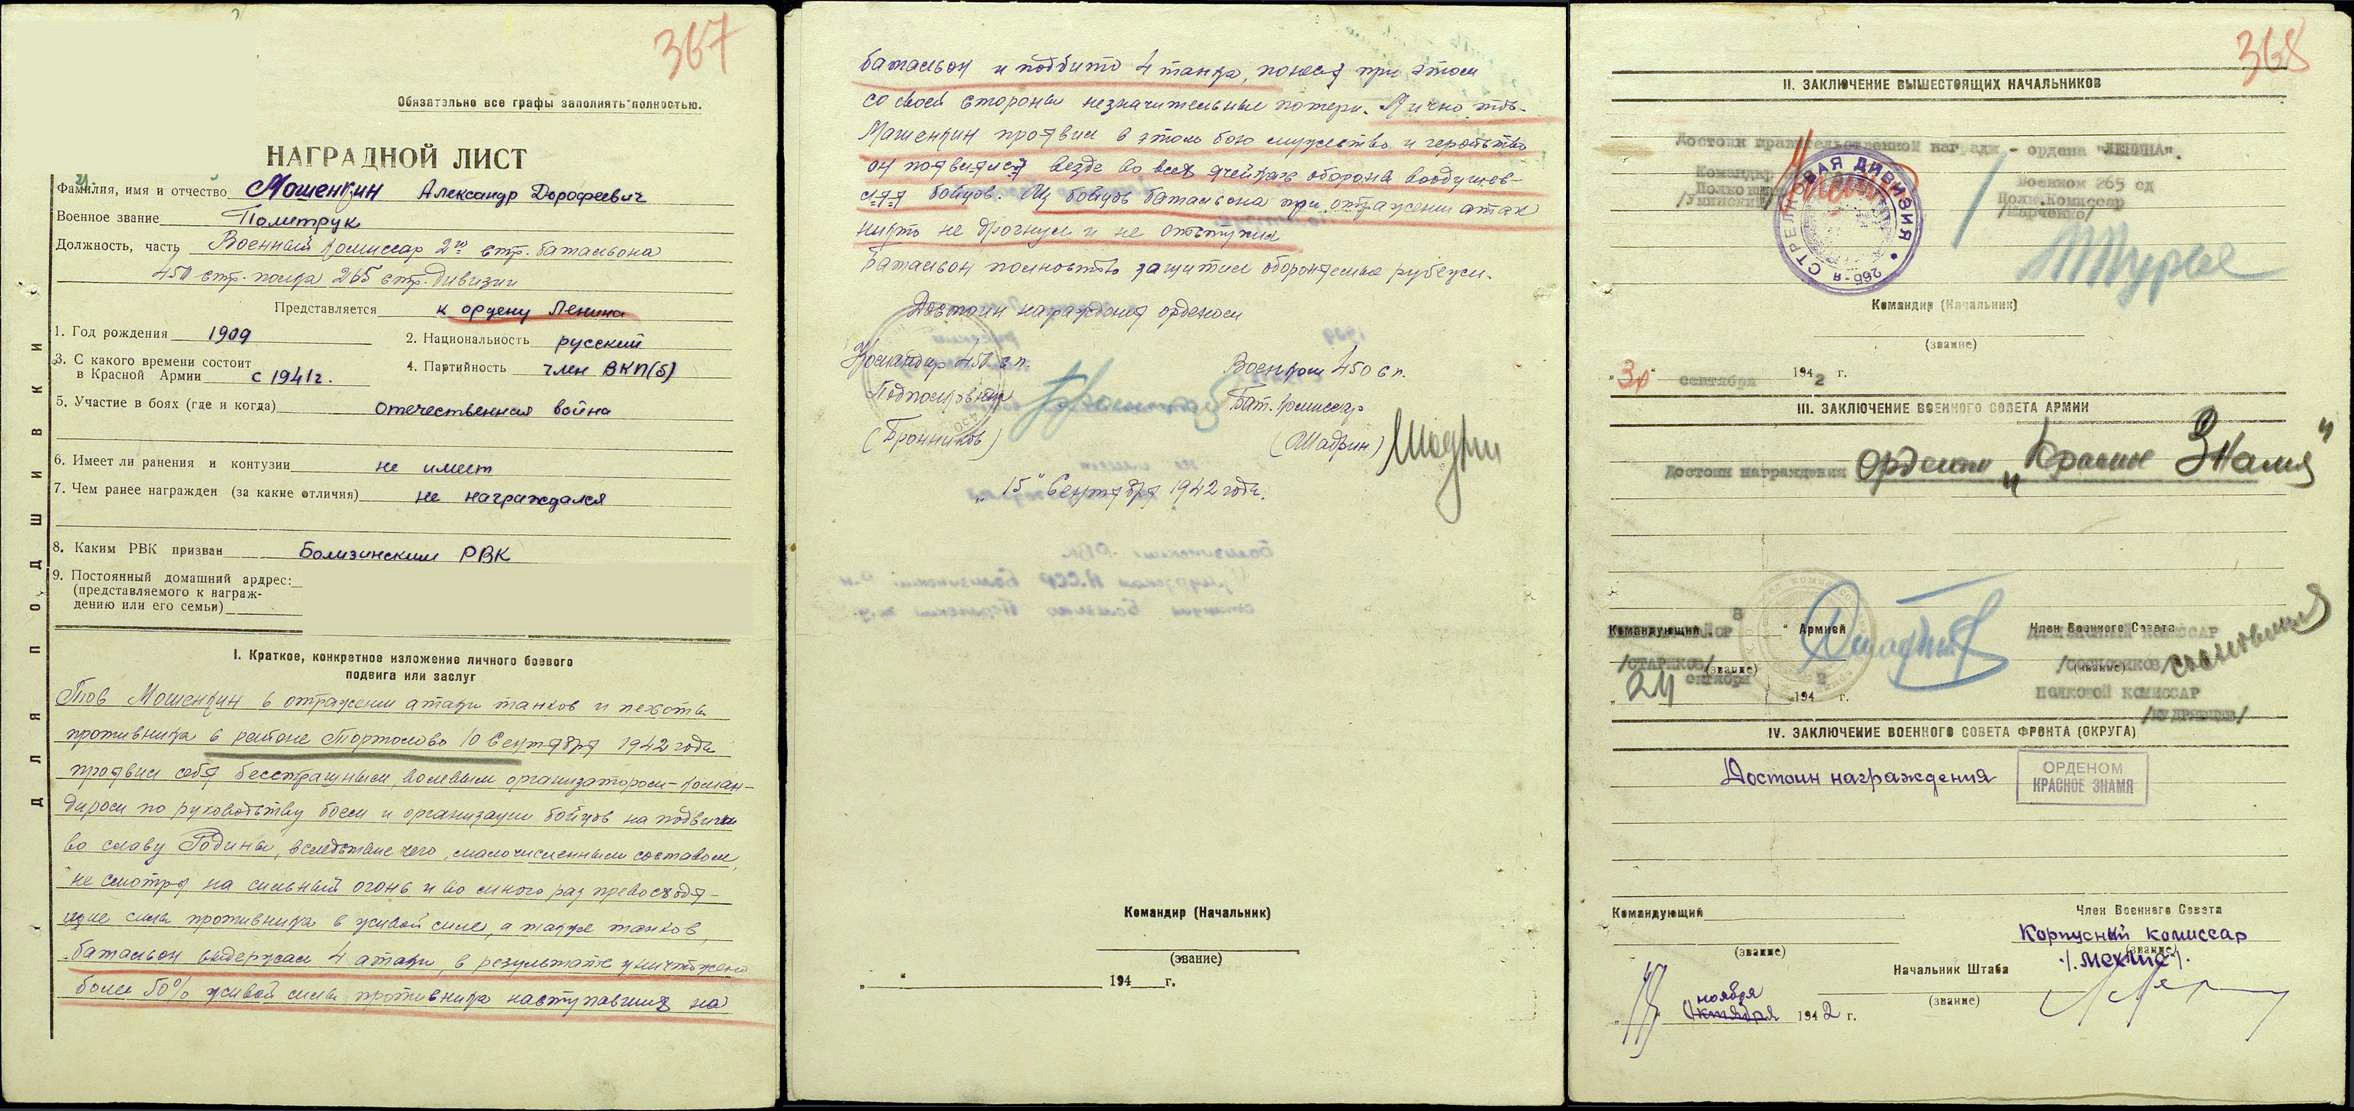 367
Обязательно все графы заполнять полностью.
НАГРАДНОЙ ЛИСТ
Фамилия, имя и отчество Мошенкин Александр Дорофеевич
Военное звание Политрук
Должность, часть Военный комиссар 2го стр. батальона
450 стр. полка 265 стр. дивизии
Представляется к ордену Ленина
1. Год рождения 1909 2. Национальность русский
3. С какого времени состоит
в Красной Армии с 1941 г. 4. Партийность член ВКП(б)
5. Участие в боях (где и когда) Отечественная война
6. Имеет ли ранения и контузии не имеет
7. Чем ранее награжден (за какие отличия) не награждался
8. Каким РВК призван Болизинским РВК
9. Постоянный домашний ардрес:
(представляемого к награж-
дению или его семьи)
ДЛЯ ПОДШИВКИ
I. Краткое, конкретное изложение личного боевого
подвига или заслуг
Тов Мошенкин в отражении атаки танков и пехоты
противника в районе Тортолово 10 Сентября 1942 года
проявил себя бесстрашным, волевым организатором-коман-
диром по руководству боем и организации бойцов на подвиги
во славу Родины, вследствие чего, малочисленным составом,
не смотря на сильный огонь и во много раз превосходя-
щие силы противника в живой силе, а также танков,
батальон выдержал 4 атаки, в результате уничтожено
более 50% живой силы противника наступавших на
батальон и подбито 4 танка, понеся при этом
со своей стороны незначительные потери. Лично тов.
Мошенкин проявил в этом бою мужество и геройство
он появлялся везде во всех ячейках обороны воодушев-
ляя бойцов. Из бойцов батальона при отражении атак
никто не дрогнул и не отступил
Батальон полностью защитил оборонтельные рубежи.
Достоин награждения орденом
Командир 450 сп. Военком 450 сп.
Подполковник Бат. комиссар
(Бронников) (Шадрин) Шадрин
"15" Сентября 1942 года.
Командир (Начальник)
(звание)
" " 194 г.
368
II. ЗАКЛЮЧЕНИЕ ВЫШЕСТОЯЩИХ НАЧАЛЬНИКОВ
Достоин правительственной награды - ордена "ЛЕНИНА".
Командир Военком 265 сд
Полковник Полк.Комиссар
СТРЕЛКОВАЯ ДИВИЗИЯ 265-я
Командир (Начальник)
(звание)
"30" сентября 1942 г.
III. ЗАКЛЮЧЕНИЕ ВОЕННОГО СОВЕТА АРМИИ
Достоин награждения орденом "Красное Знамя"
Командующий 8 Армией Член Военного Совета
/СТАРИКОВ/ (звание) (звание)
24 октября 1942 г. ПОЛКОВОЙ КОМИССАР
IV. ЗАКЛЮЧЕНИЕ ВОЕННОГО СОВЕТА ФРОНТА (ОКРУГА)
Достоин награждения ОРДЕНОМ
КРАСНОЕ ЗНАМЯ
Командующий Член Военнего Совета
Корпусный комиссар
(звание) (звание)
/МЕХЛИС/.
Начальник Штаба
(звание)
ноября
октября 1942 г.